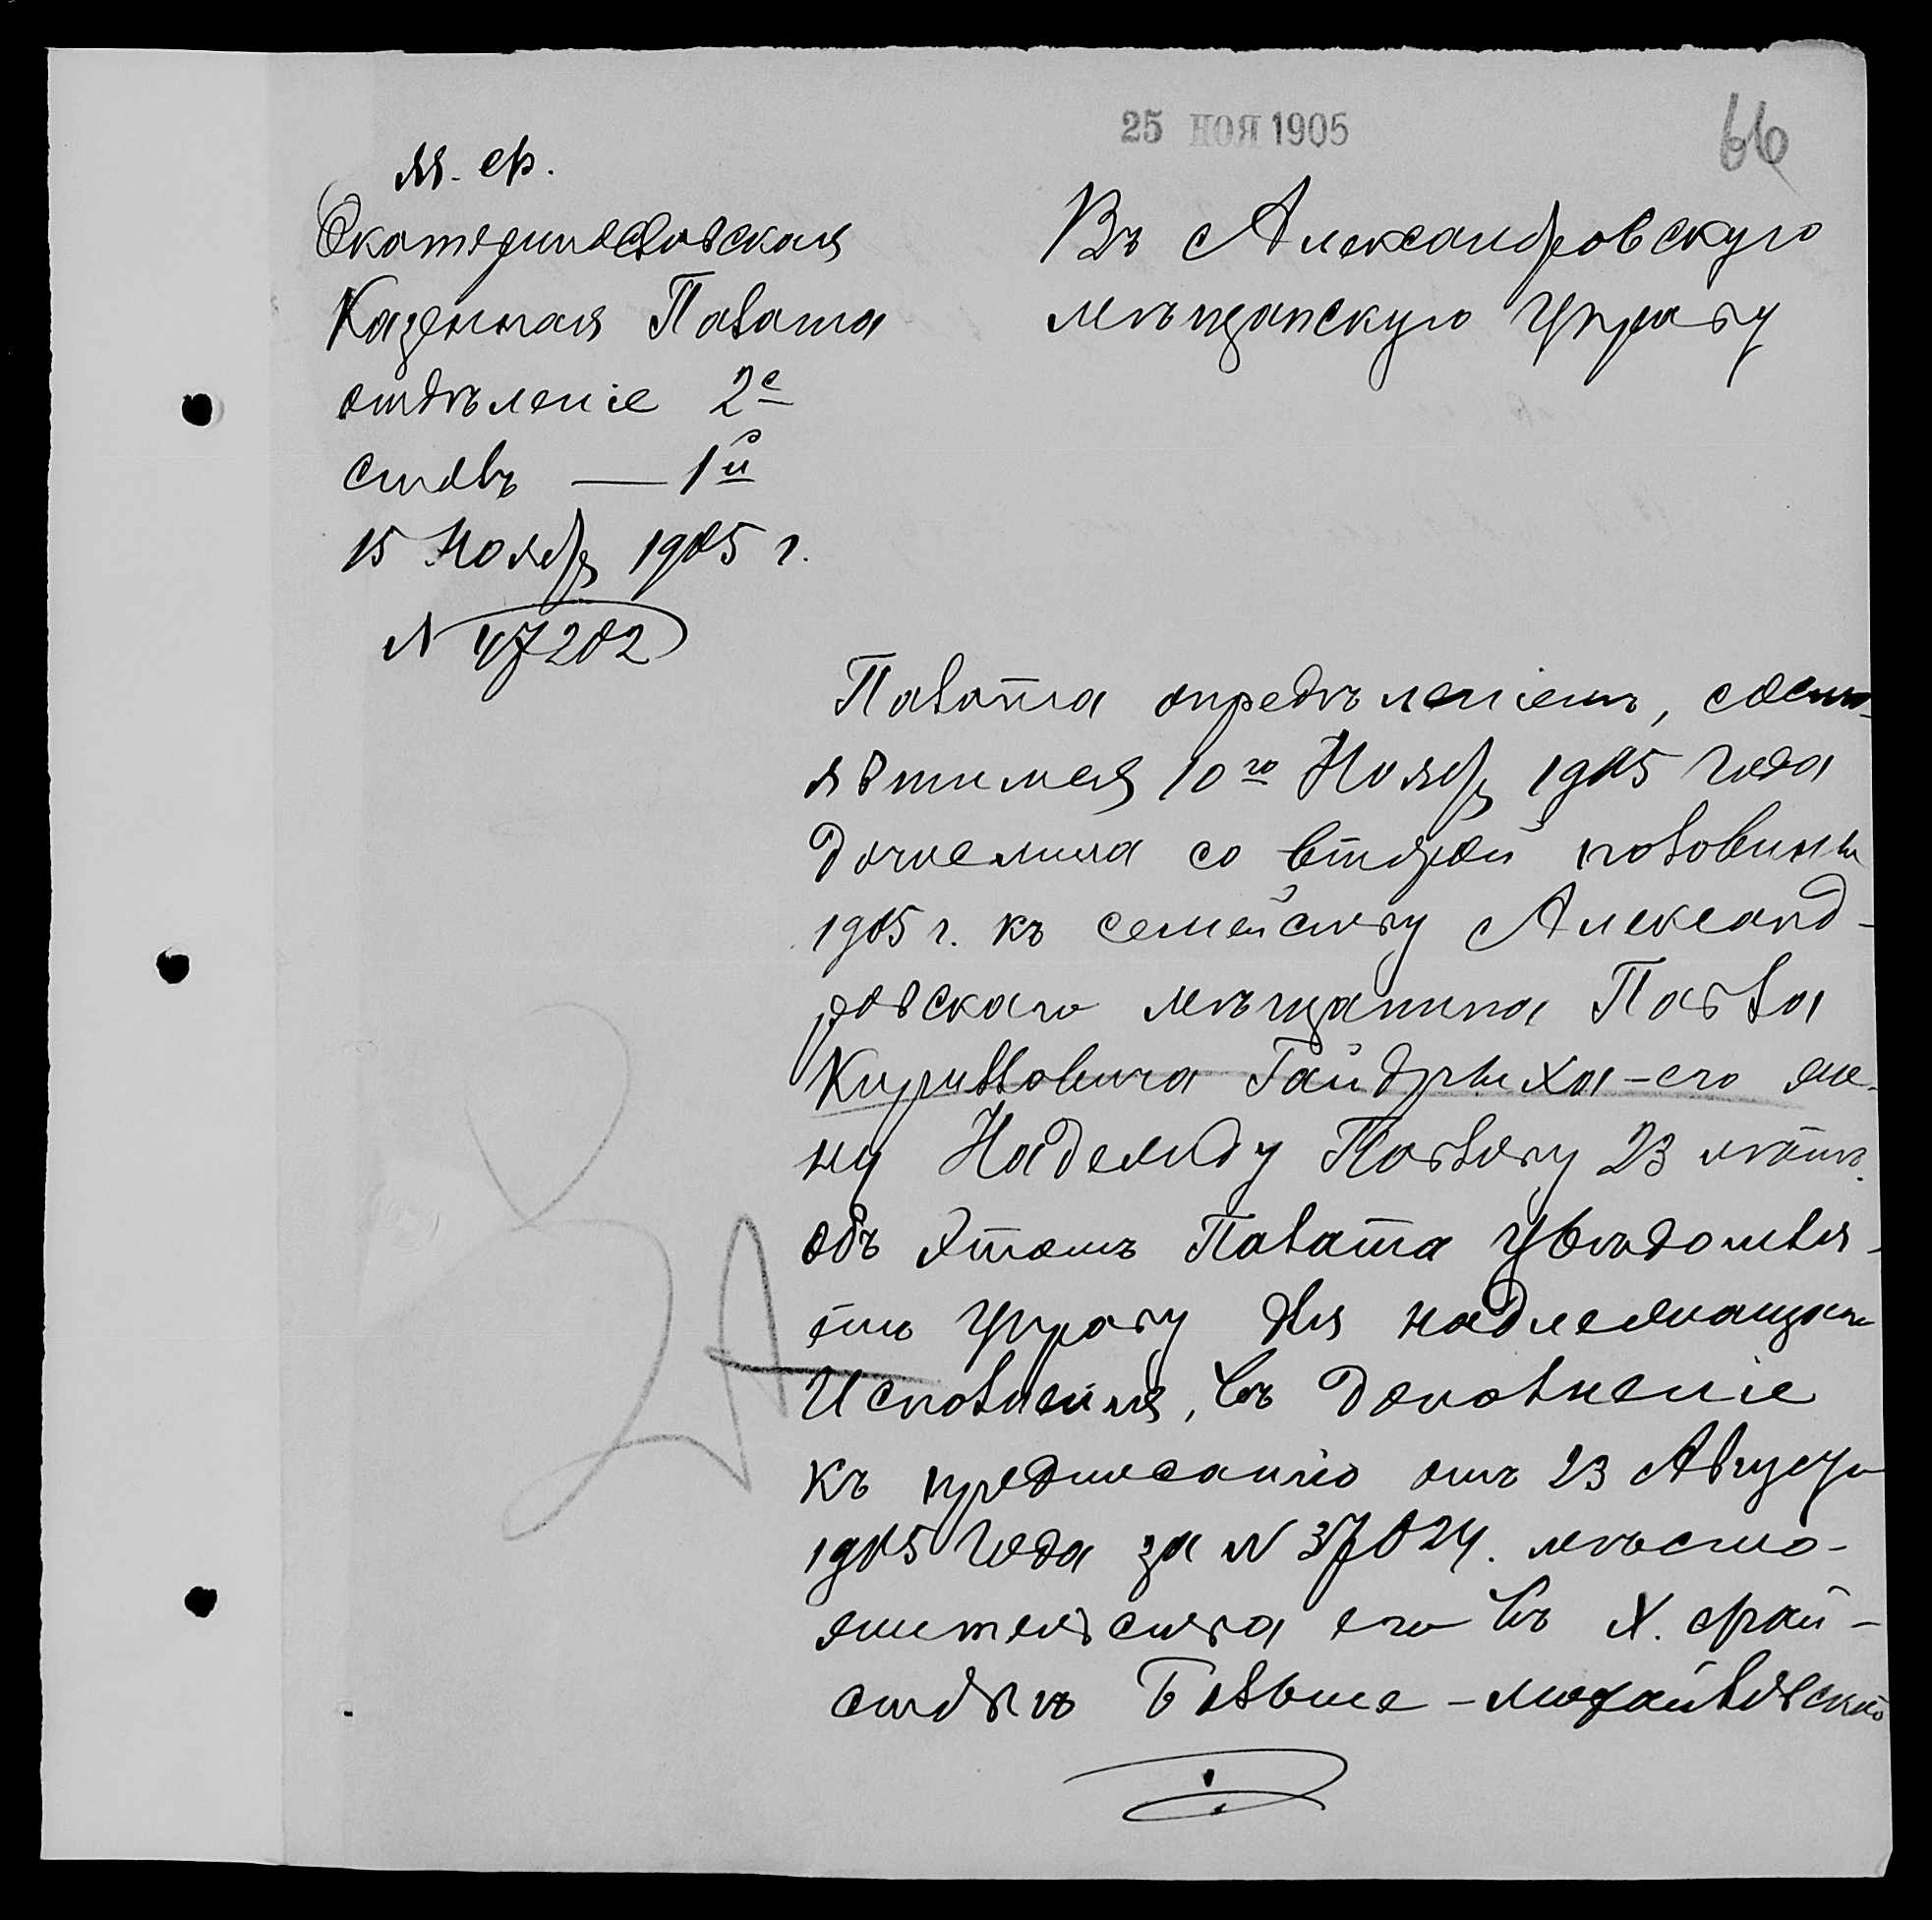 25 НОЯ 1905
66
М. Ф.
Екатеринославская
Казенная Палата
отдѣленіе 2е
столъ — 1й
15 Ноябр 1905 г.
N 47202
Въ Александровскую
мѣщанскую Управу
Палата опредѣленіемъ, состо-
явшимся 10го Ноябр 1905 года
дочислила со второй половины
1905 г. къ семейству Александ-
ровскаго мѣщанина Павла
Кирилловича Гайдрыха - его же-
ну Надежду Павлову 23 лѣтъ.
Объ этомъ Палата увѣдомля-
етъ Управу для надлежащаго
исполненія, въ дополненіе
къ предписанію отъ 23 Августа
1905 года за N 37024. Мѣсто-
жительства его въ х.
Больше-Михайловской